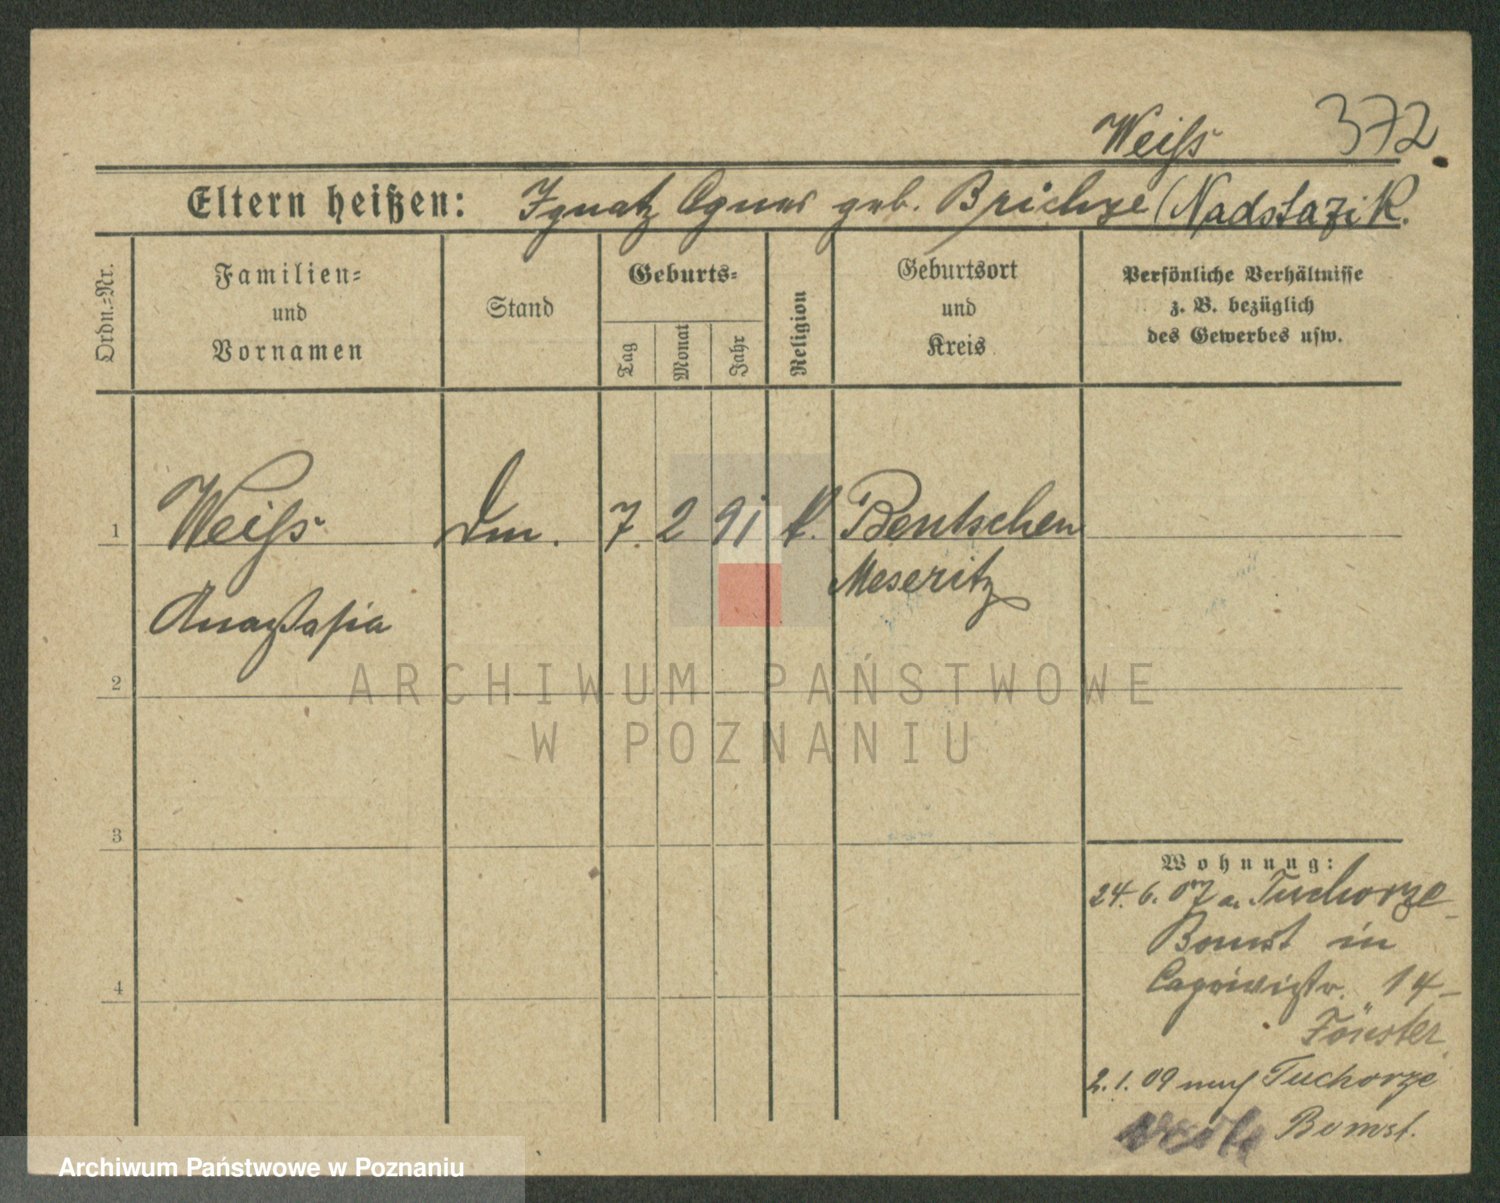 Weiſs 372.
Eltern heißen: Ignatz Agnes geb. Brichze (Nadstazik.
Ordn.=Nr.
Familien=
und
Vornamen
Stand
Geburts=
Tag
Monat
Jahr
Religion
Geburtsort
und
Kreis
Persönliche Verhältnisse
z. B. bezüglich
des Gewerbes usw.
1 Weiſs Dm. 7. 2 91 k. Bentschen
Meseritz
Anaſtaſia
2
ARCHIWUM PAŃSTWOWE
W POZNANIU
3
4
Wohnung:
24. 6. 07 a. Tuchorze
Bomst in
14
Förster
2. 1. 09 nach Tuchorze
Bomst.
Archiwum Państwowe w Poznaniu